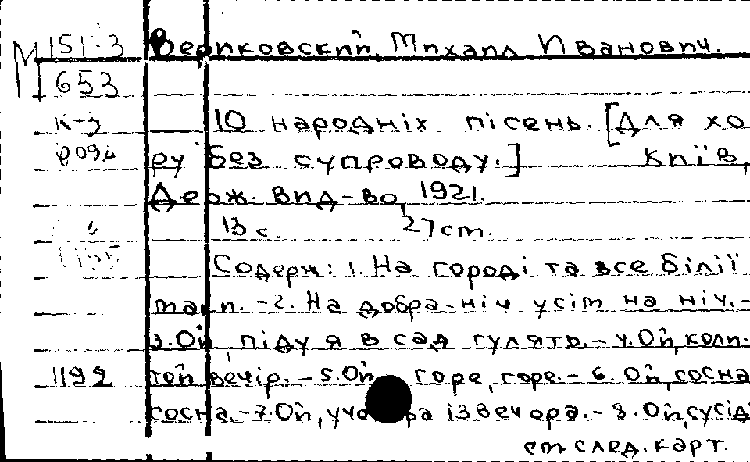 М 151-3 Вериковский, Михаил Иванович.
653
К-3 10 народніх пісень. [Для хо
ру без супроводу.] Київ,
Держ. вид-во, 1921.
13 с. 27 cm.
Содерж: 1. На городі та все білії
маки. - 2. На добра-ніч усім на ніч. -
3. Ой, піду я в сад гулять. - 4. Ой, коли-
1199 той вечір. - 5. Ой горе, горе. - 6. Ой, сосна
сосна. - 7. Ой, учора ізвечора. - 8. Ой, сусід
см. след. карт.